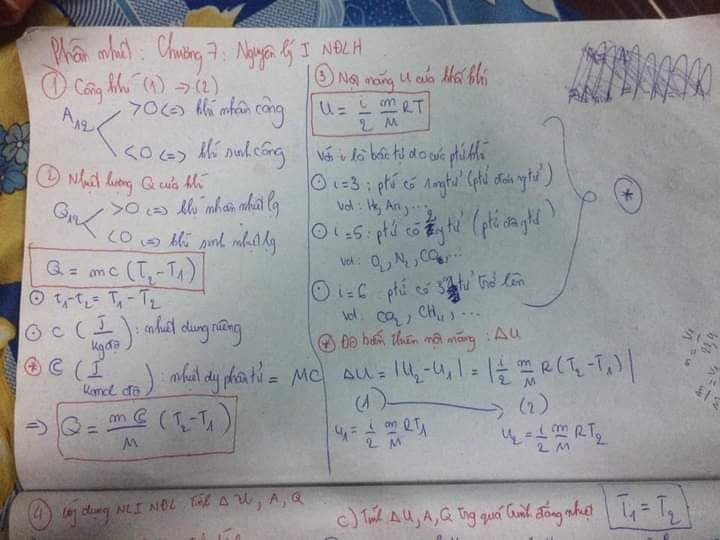 Phần nhiệt: Chương 7: Nguyên lý I NĐLH
① Công khí (1) => (2)
A12 < >0 <=> khí nhận công
<0 <=> khí sinh công
② Nhiệt lượng Q của khí
Q12 < >0 <=> khí nhận nhiệt lg
<0 <=> khí sinh nhiệt lg
Q = mc (T2 - T1)
t1 - t2 = T1 - T2
C (J/kg độ): nhiệt dung riêng
* C (J/kmol độ): nhiệt dg phân tử = MC
=> Q = mC/M (T2 - T1)
③ Nội năng U của khối khí
U = i/2 m/M RT
Với i là bậc tự do các ptử khí
i=3: ptử có 1 ng tử (ptử đơn ng tử)
vd: He, Ar, ...
i=5: ptử có 2 ng tử (ptử
vd: O2, N2, ...
i=6: ptử có 3 ng tử trở lên
vd: CO2, CH4, ...
*
* Độ biến thiên nội năng: ΔU
ΔU = |U2 - U1| = |i/2 m/M R (T2 - T1)|
(1) → (2)
U1 = i/2 m/M RT1
U2 = i/2 m/M RT2
④ Áp dụng NLI NĐLH tính ΔU, A, Q
c) Tính ΔU, A, Q trg quá trình đẳng nhiệt T1 = T2